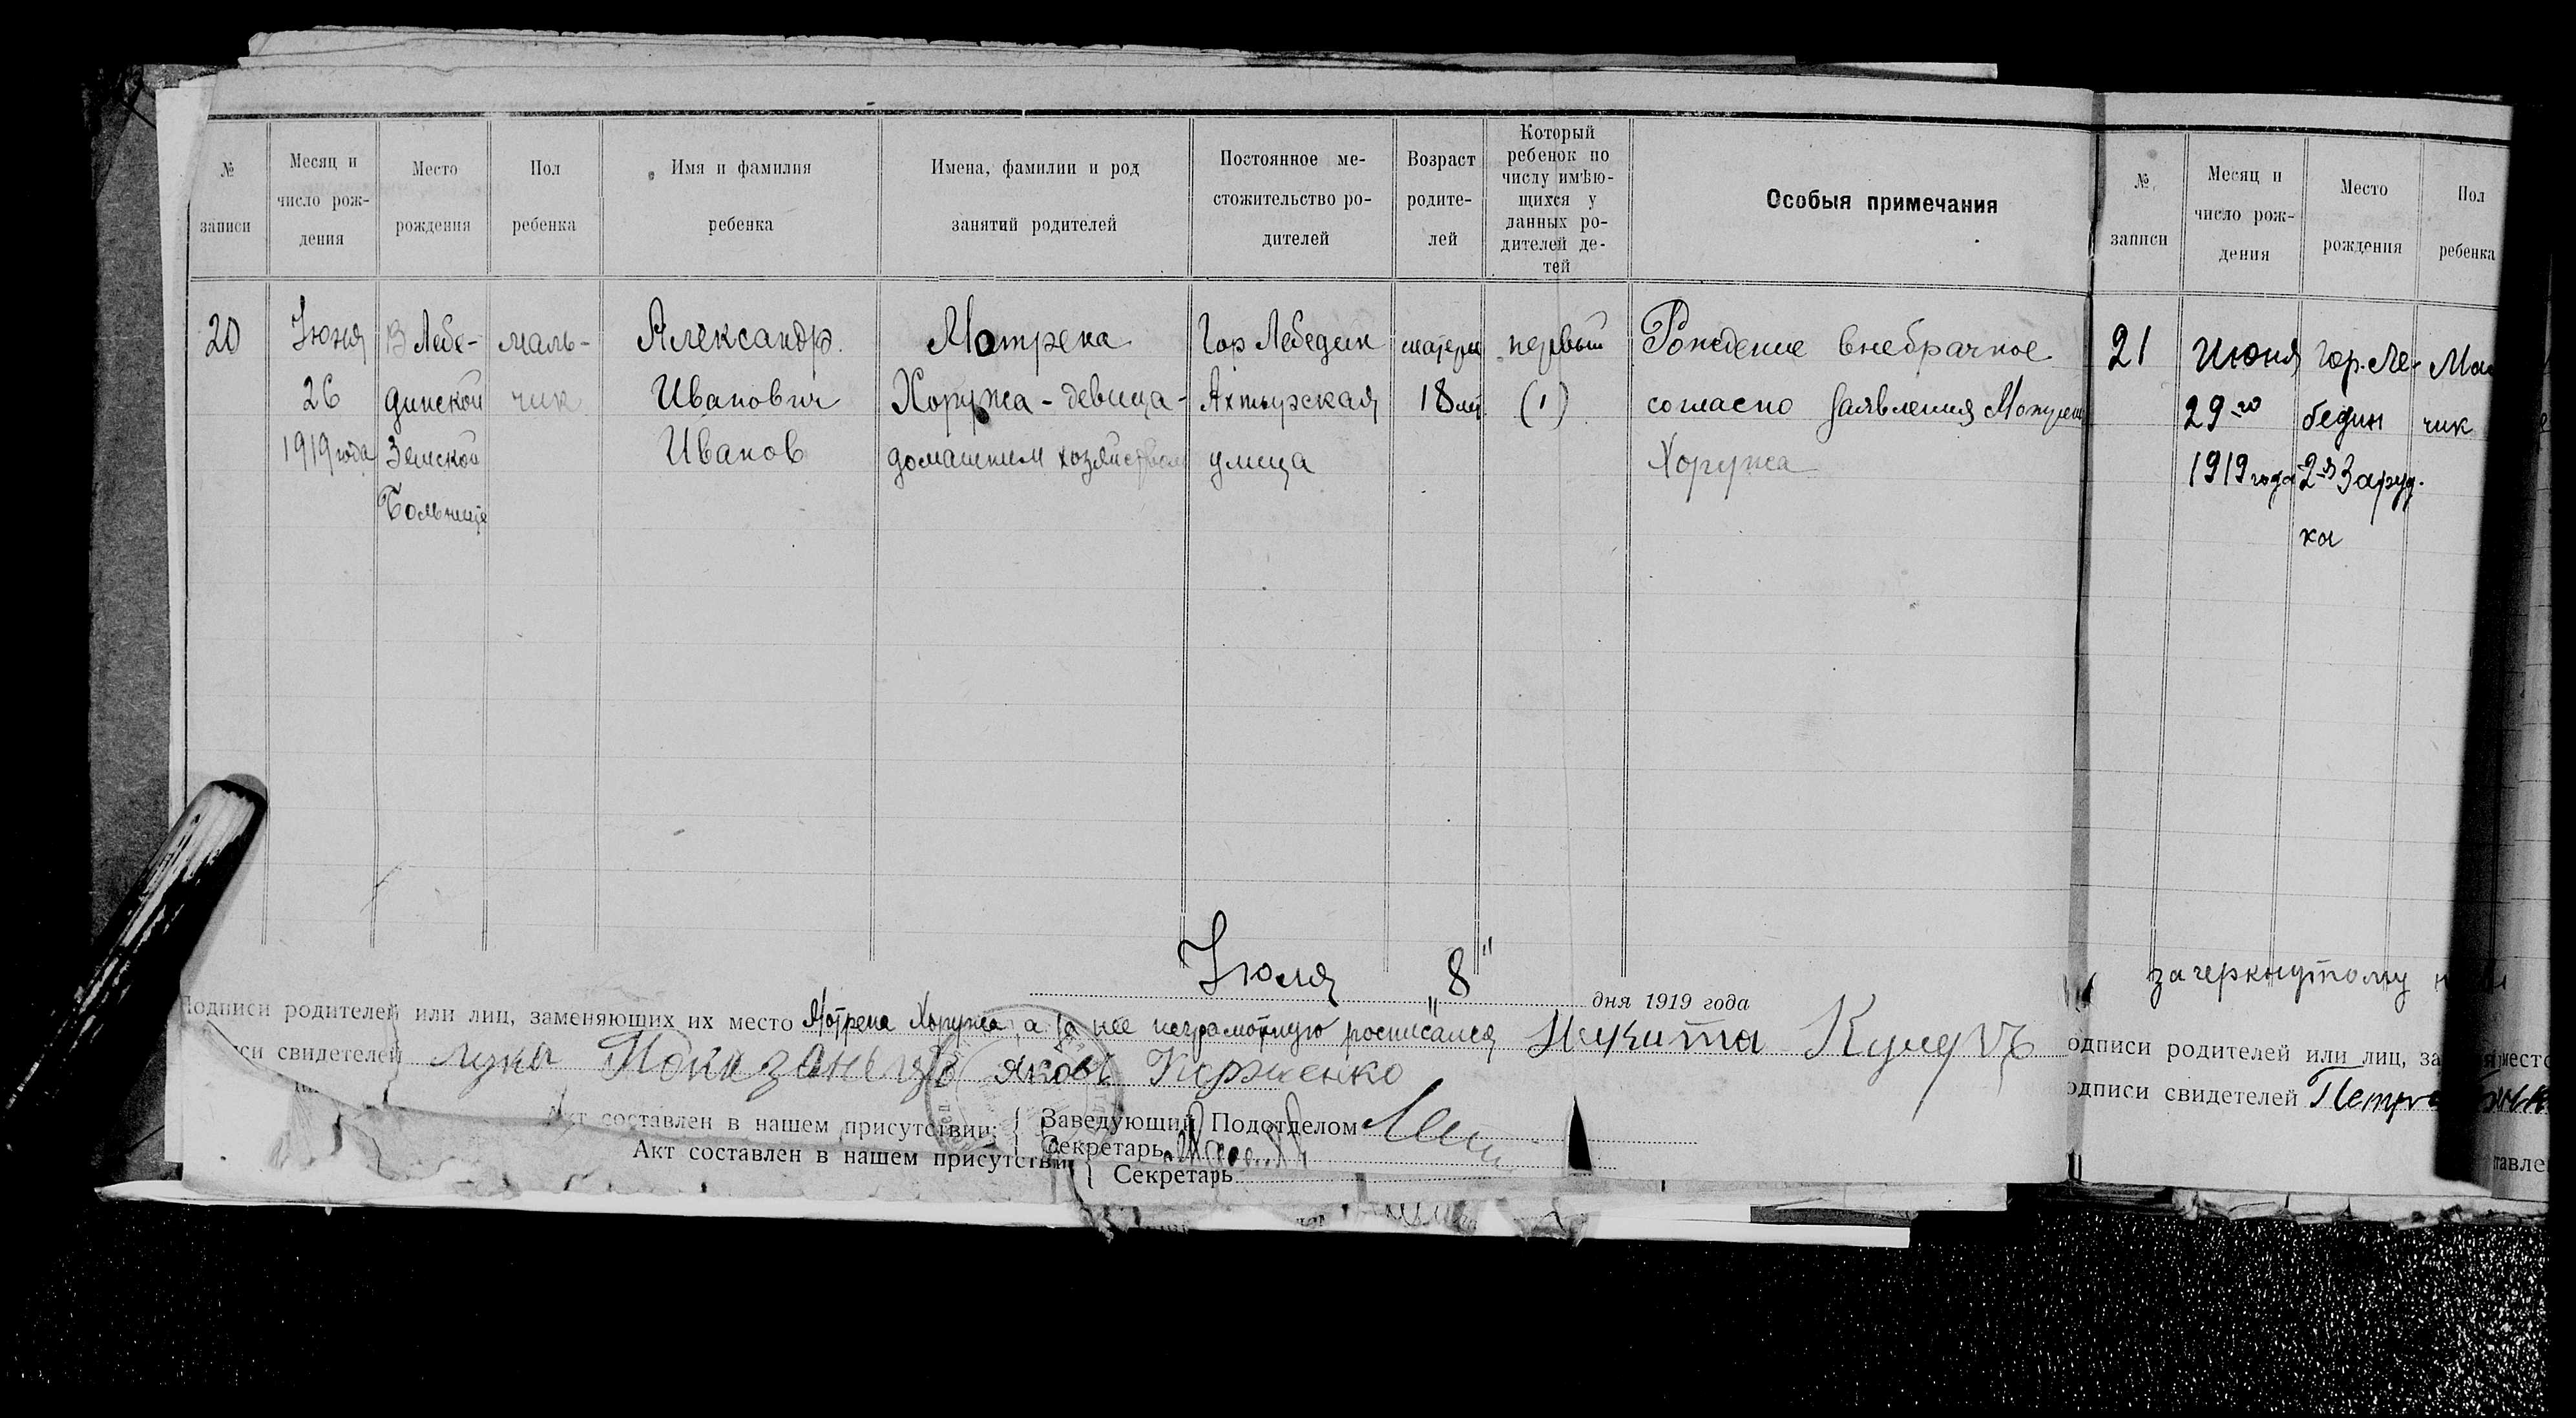 № записи
Месяц и число рождения
Место рождения
Пол ребенка
Имя и фамилия ребенка
Имена, фамилии и род занятий родителей
Постоянное местожительство родителей
Возраст родителей
Который ребенок по числу имѣющихся у данных родителей детей
Особыя примечания
20
Июня
26
1919 года
В Лебе-
динской
Земской
Больнице
маль-
чик
Александр
Иванович
Иванов
Мотрена
Хоружа - девица -
домашним хозяйством
Гор Лебедин
Ахтырская
улица
матери
18 лет
первый
(1)
Рождение внебрачное
согласно заявления Мотрени
Хоружа
Июля "8" дня 1919 года
Подписи родителей или лиц, заменяющих их место Мотрена Хоружа, а за нее неграмотную росписался Никита
свидетелей Лука Яковъ
Акт составлен в нашем присутствии: Заведующий Подотделом
Секретарь
Акт составлен в нашем присутствии
Секретарь
№ записи
Месяц и число рождения
Место рождения
Пол ребенка
21
Июня
29го
1919 года
гор. Ле-
бедин
2я Заруд-
ка
чик
зачеркнутому
одписи родителей или лиц, за место
одписи свидетелей Петро